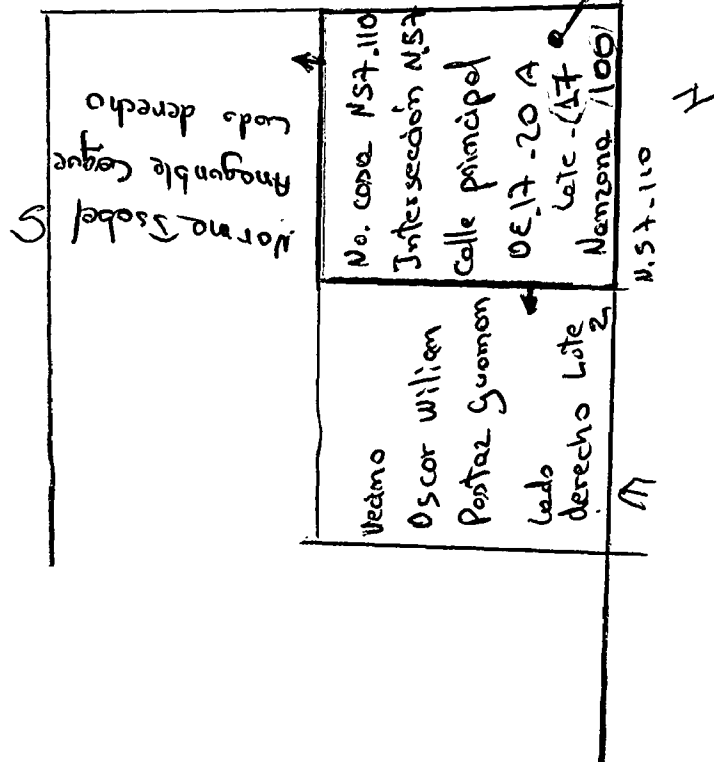 Norma Isabel
Anagumble Coque
Lado derecho
S
No. casa N57-110
Intersección N.57
Calle principal
OE.17-20 A
Lote-17
Manzana 100
N.57-110
Vecino
Oscar Wilian
Postaz Guaman
Lado
derecho Lote
2